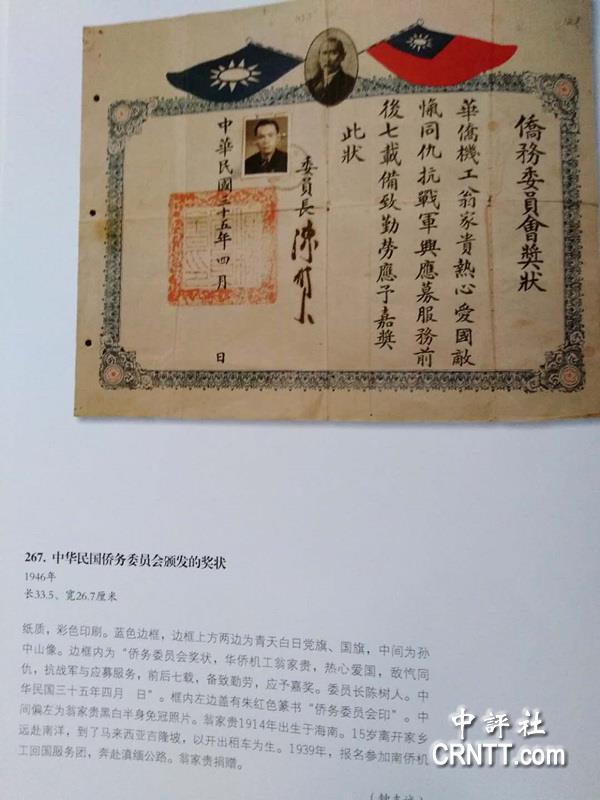 僑務委員會獎狀
華僑機工翁家貴熱心愛國敵
愾同仇抗戰軍興應募服務前
後七載備致勤勞應予嘉獎
此狀
委員長 陳樹人
中華民國三十五年四月 日
267. 中华民国侨务委员会颁发的奖状
1946年
长33.5、宽26.7厘米
纸质，彩色印刷。蓝色边框，边框上方两边为青天白日党旗、国旗，中间为孙
中山像。边框内为“侨务委员会奖状，华侨机工翁家贵，热心爱国，敌忾同
仇，抗战军与应募服务，前后七载，备致勤劳，应予嘉奖。委员长陈树人。中
华民国三十五年四月 日”。框内左边盖有朱红色篆书“侨务委员会印”。中
间偏左为翁家贵黑白半身免冠照片。翁家贵1914年出生于海南。15岁离开家乡
远赴南洋，到了马来西亚吉隆坡，以开出租车为生。1939年，报名参加南侨机
工回国服务团，奔赴滇缅公路。翁家贵捐赠。
中評社
CRNTT.com